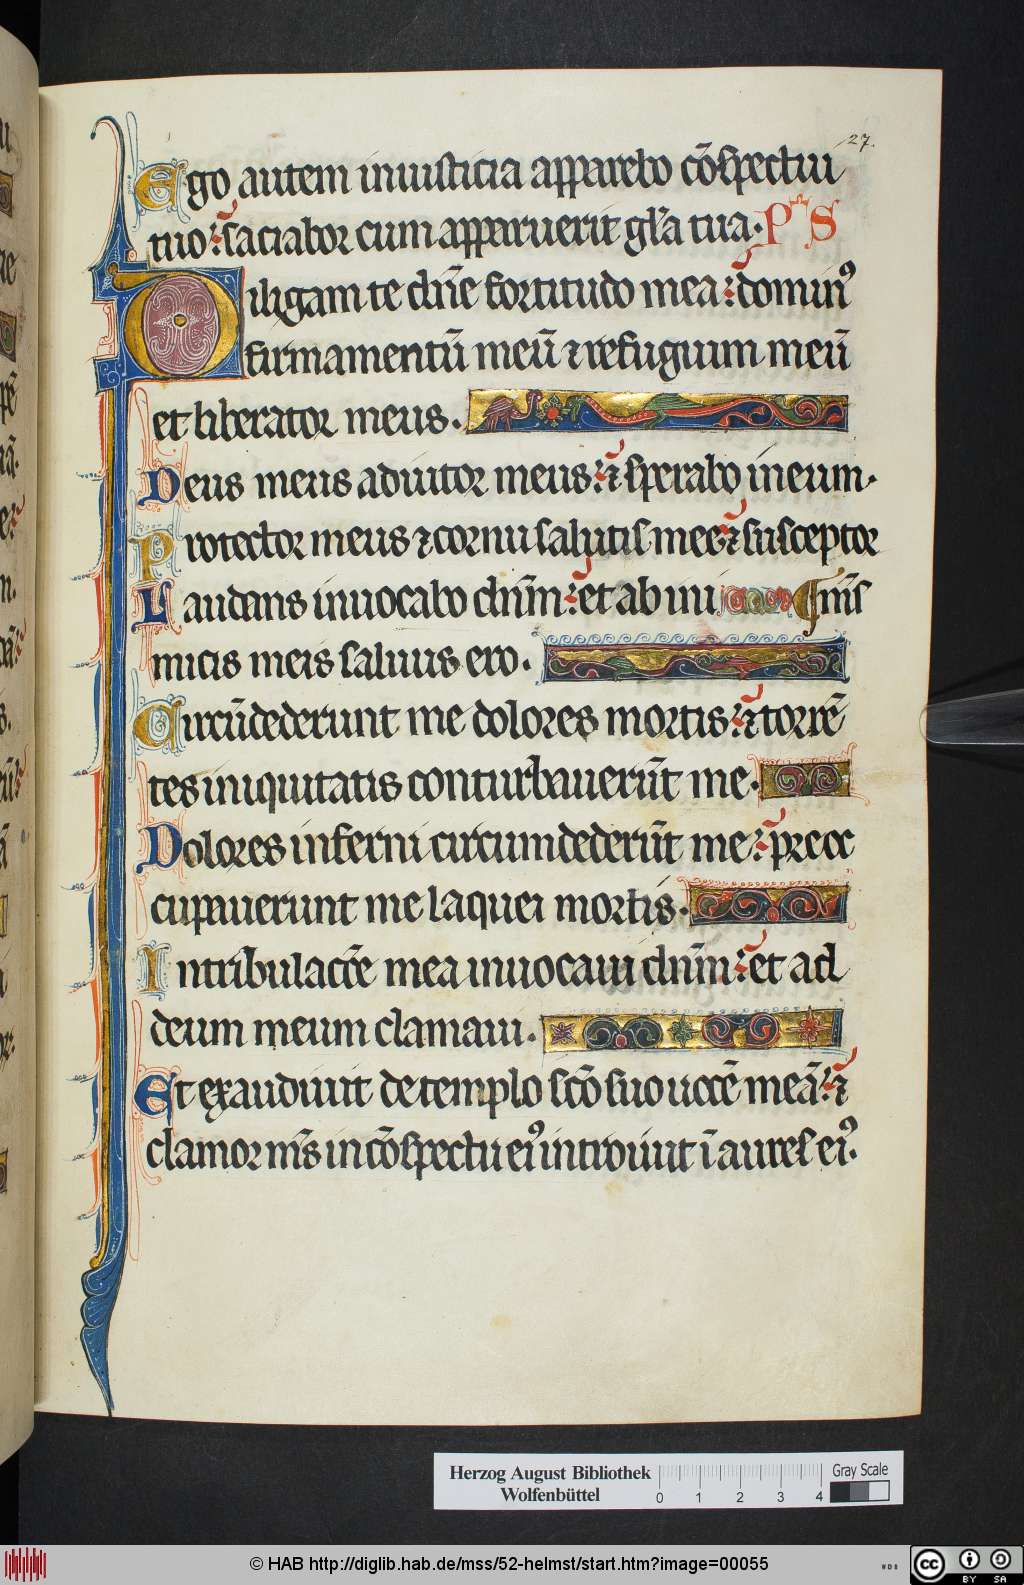 27.
Ego autem in iusticia apparebo cōspectui
tuo: saciabor cum apparuerit gl̄a tua. Ps
Diligam te dn̄e fortitudo mea: dominꝰ
firmamentū meū ⁊ refugium meū
et liberator meus.
Deus meus adiutor meus: ⁊ sperabo in eum.
Protector meus ⁊ cornu salutis mee: ⁊ susceptor
Laudans inuocabo dn̄m: et ab ini m̄s
micis meis saluus ero.
Circūdederunt me dolores mortis: ⁊ torrē
tes iniquitatis conturbauerūt me.
Dolores inferni circumdederūt me: preoc
cupauerunt me laquei mortis.
In tribulac̄oe mea inuocaui dn̄m: et ad
deum meum clamaui.
Et exaudiuit de templo sc̄o suo uocē meā: ⁊
clamor m̄s in cōspectu eiꝰ introiuit ī aures eiꝰ.
Herzog August Bibliothek
Wolfenbüttel
0 1 2 3 4
Gray Scale
© HAB http://diglib.hab.de/mss/52-helmst/start.htm?image=00055
WDB
cc BY SA